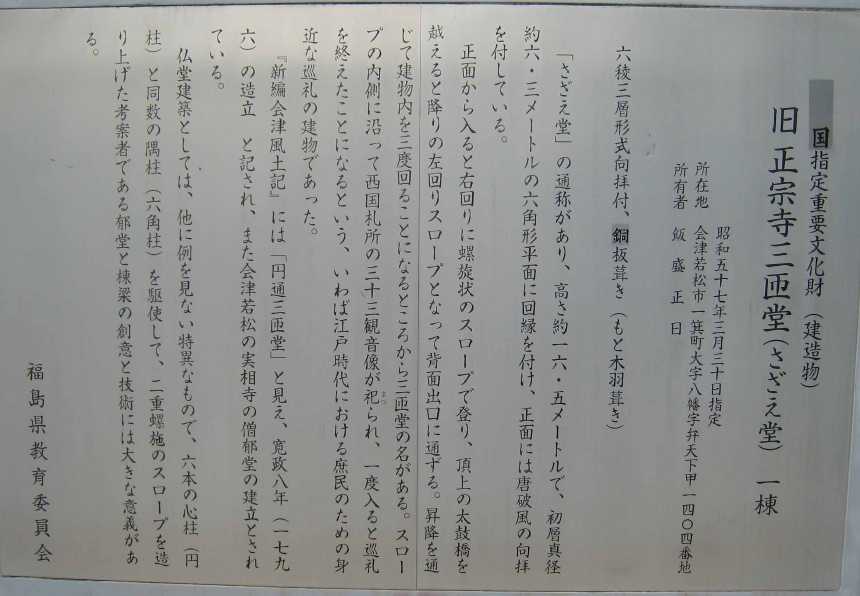 国指定重要文化財（建造物）
旧正宗寺三匝堂（さざえ堂）　一棟
昭和五十七年三月三十日指定
所在地　会津若松市一箕町大字八幡字弁天下甲一四〇四番地
所有者　飯盛正日
六稜三層形式向拝付、銅板葺き（もと木羽葺き）
「さざえ堂」の通称があり、高さ約一六・五メートルで、初層真径
約六・三メートルの六角形平面に回縁を付け、正面には唐破風の向拝
を付している。
正面から入ると右回りに螺旋状のスロープで登り、頂上の太鼓橋を
越えると降りの左回りスロープとなって背面出口に通ずる。昇降を通
じて建物内を三度回ることになるところから三匝堂の名がある。スロー
プの内側に沿って西国札所の三十三観音像が祀られ、一度入ると巡礼
まつ
を終えたことになるという、いわば江戸時代における庶民のための身
近な巡礼の建物であった。
『新編会津風土記』には「円通三匝堂」と見え、寛政八年（一七九
六）の造立　と記され、また会津若松の実相寺の僧郁堂の建立とされ
ている。
仏堂建築としては、他に例を見ない特異なもので、六本の心柱（円
柱）と同数の隅柱（六角柱）を駆使して、二重螺施のスロープを造
り上げた考案者である郁堂と棟梁の創意と技術には大きな意義があ
る。
福島県教育委員会